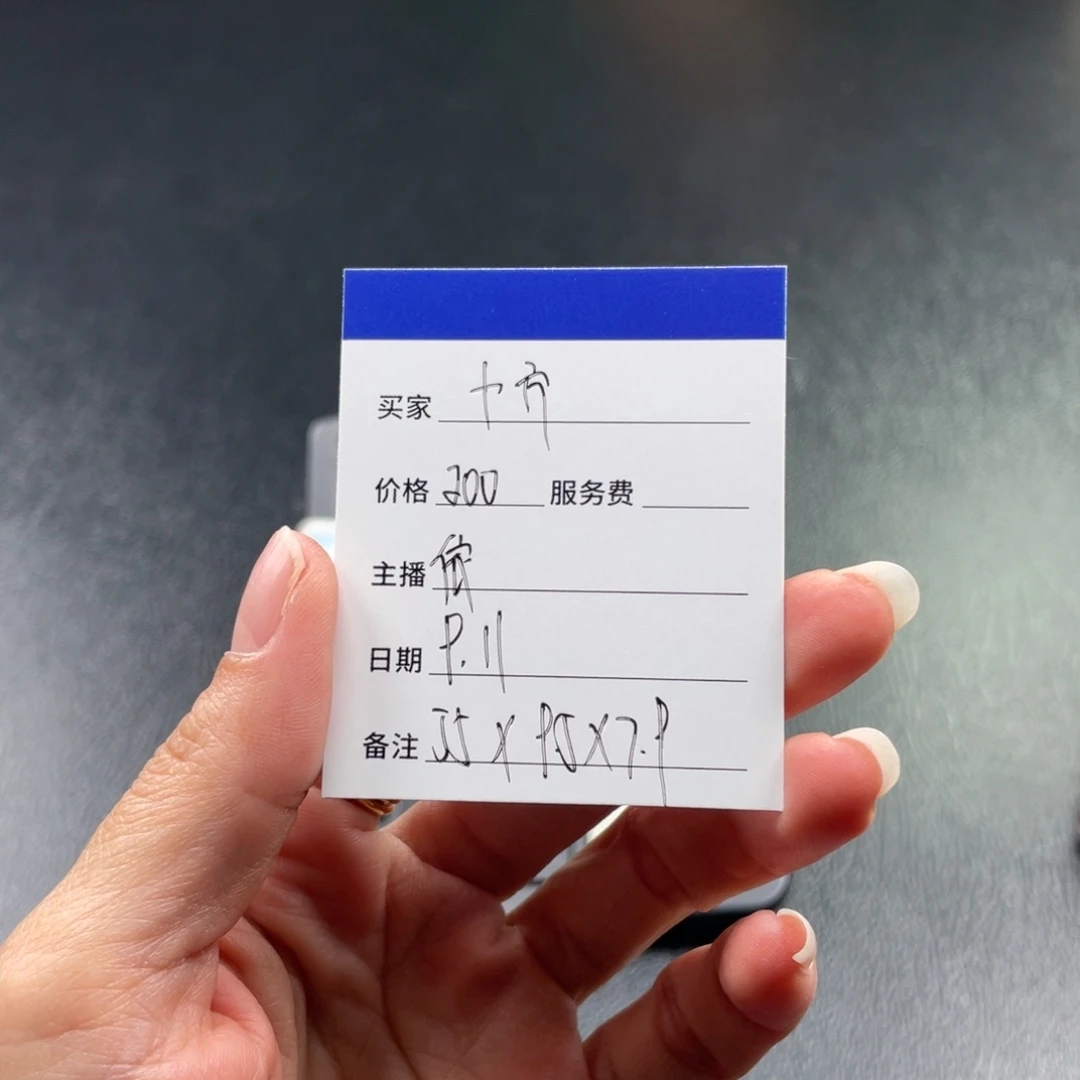 买家 十方
价格 200 服务费
主播
日期 9.11
备注 55 X 9.5 X 7.9